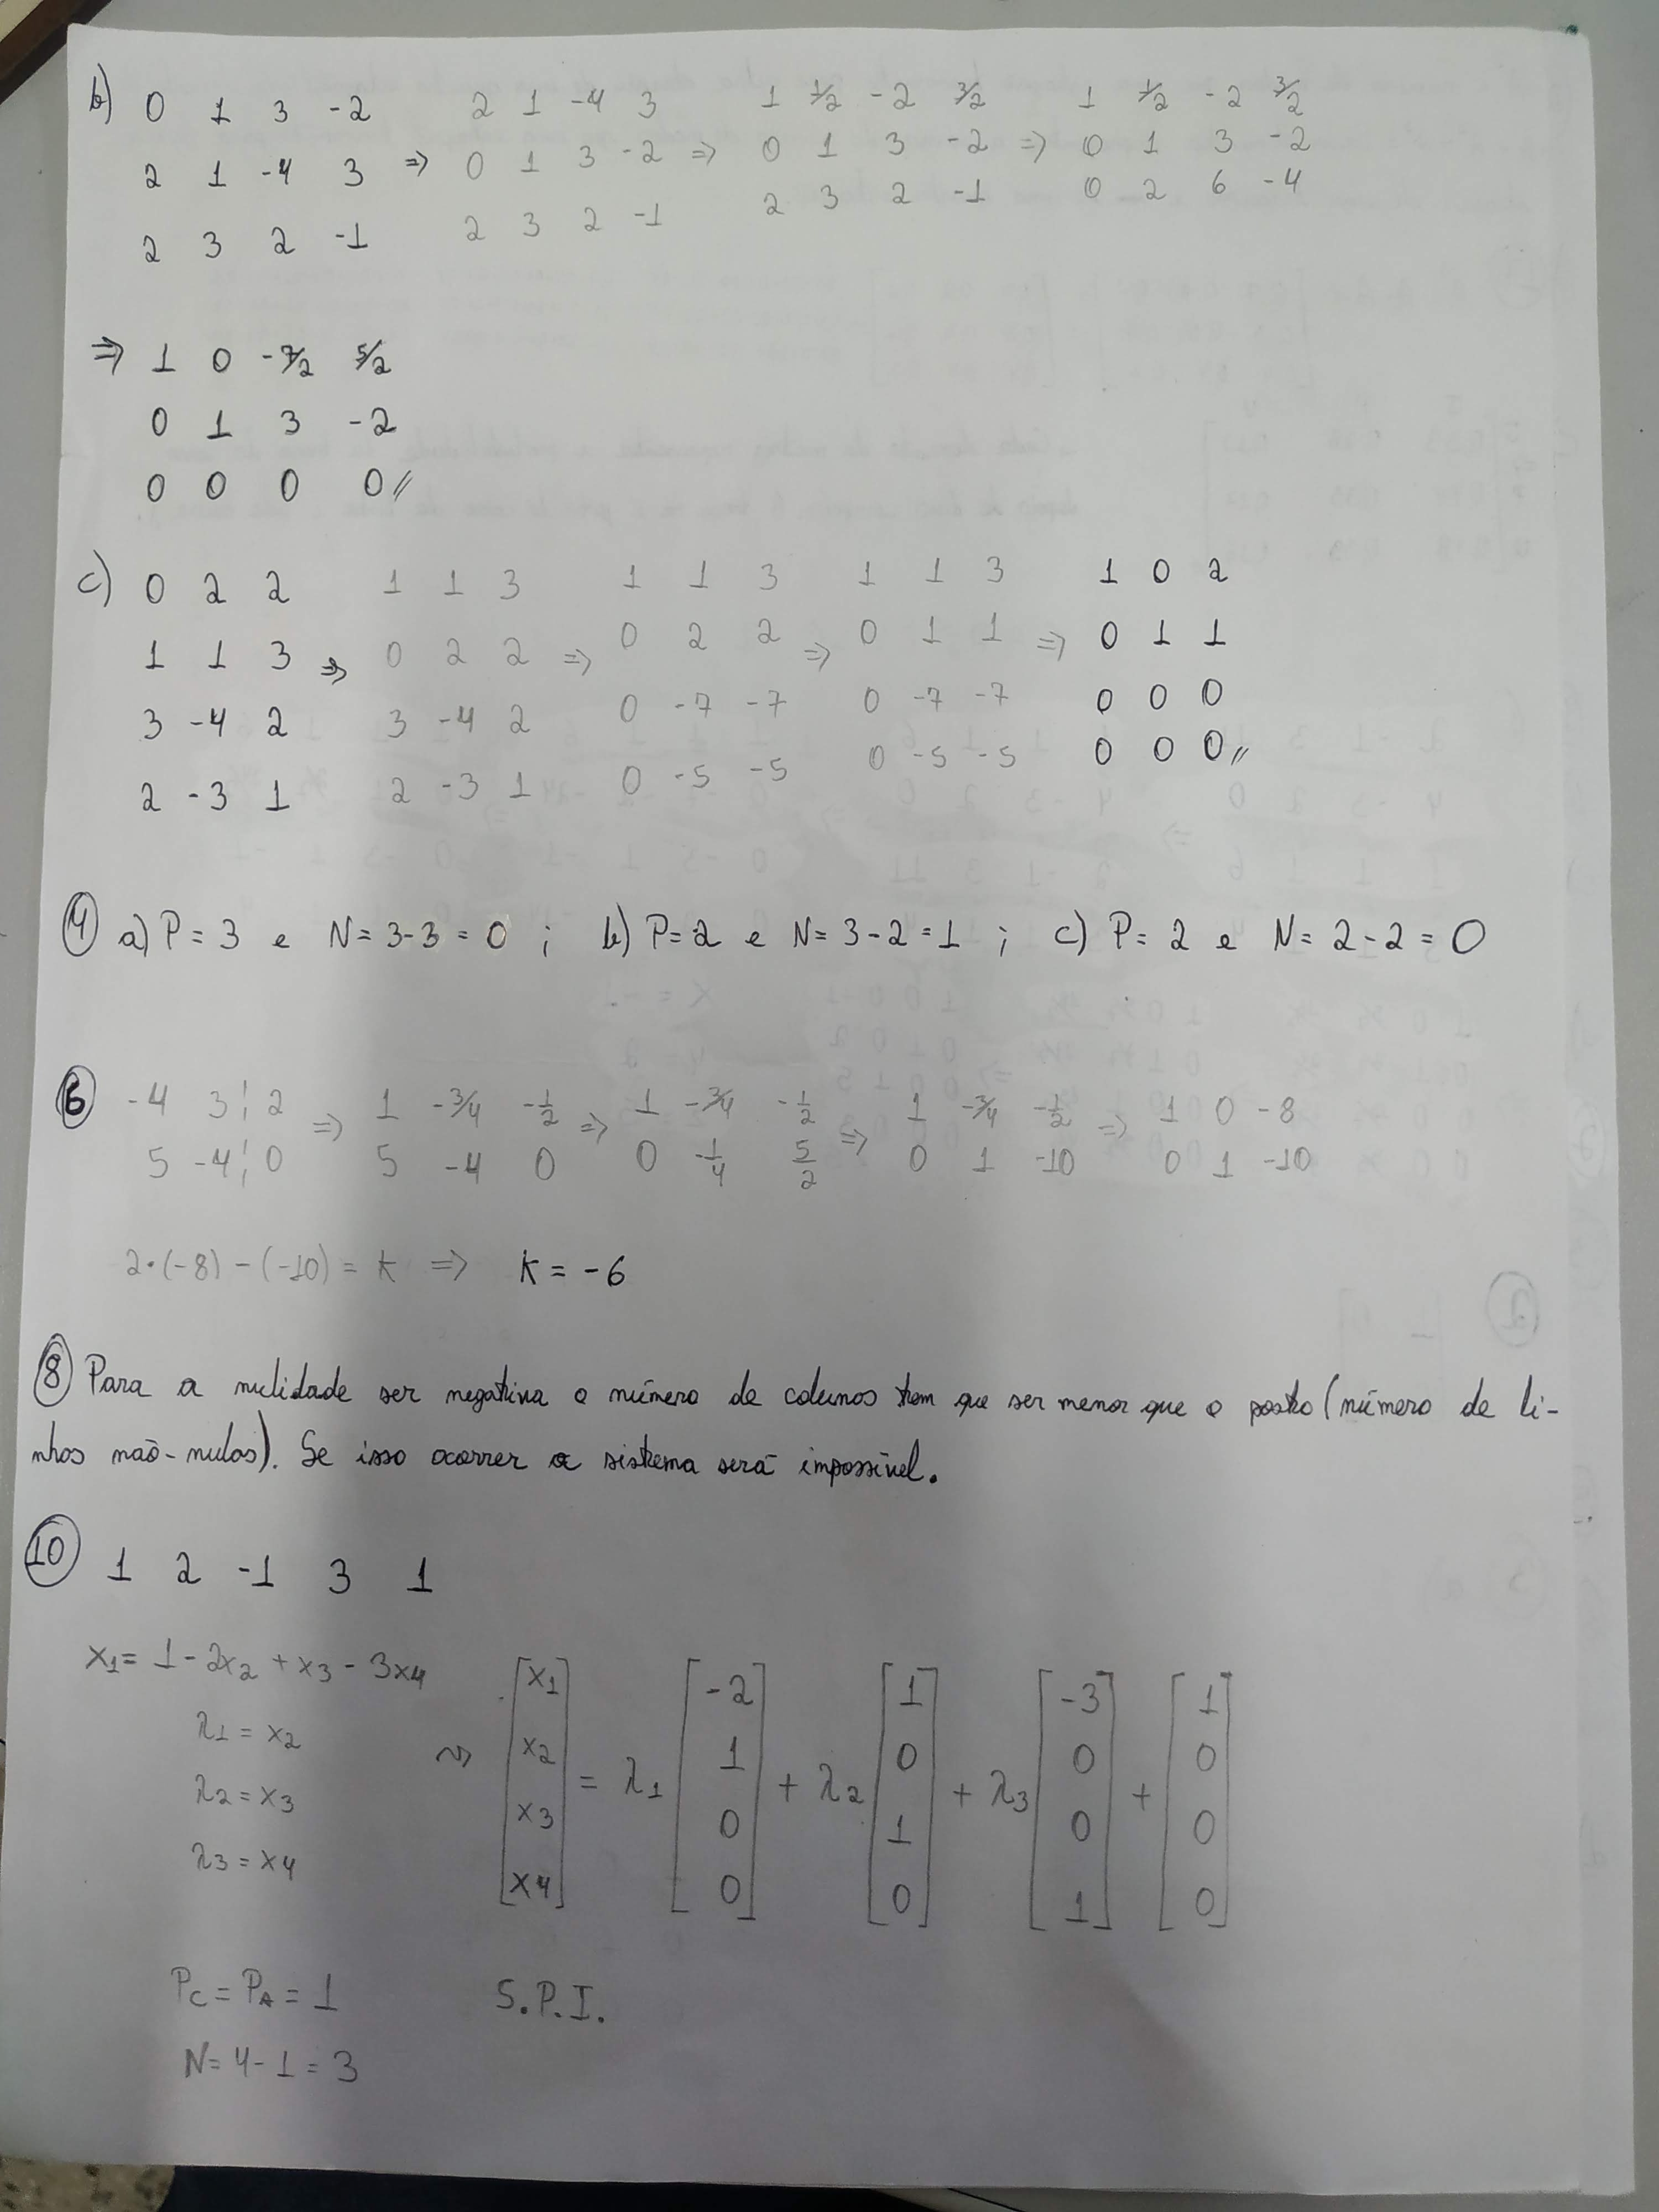 b) 0 1 3 -2 2 1 -4 3 1 1/2 -2 3/2 1 1/2 -2 3/2
2 1 -4 3 => 0 1 3 -2 => 0 1 3 -2 => 0 1 3 -2
2 3 2 -1 2 3 2 -1 2 3 2 -1 0 2 6 -4
=> 1 0 -7/2 5/2
0 1 3 -2
0 0 0 0//
c) 0 2 2 1 1 3 1 1 3 1 1 3 1 0 2
1 1 3 => 0 2 2 => 0 2 2 => 0 1 1 => 0 1 1
3 -4 2 3 -4 2 0 -7 -7 0 -7 -7 0 0 0
2 -3 1 2 -3 1 0 -5 -5 0 -5 -5 0 0 0//
4 a) P = 3 e N = 3-3 = 0 ; b) P = 2 e N = 3-2 = 1 ; c) P = 2 e N = 2-2 = 0
6 -4 3 ¦ 2 => 1 -3/4 -1/2 => 1 -3/4 -1/2 => 1 -3/4 -1/2 => 1 0 -8
5 -4 ¦ 0 5 -4 0 0 -1/4 5/2 0 1 -10 0 1 -10
2·(-8) - (-10) = K => K = -6
8 Para a nulidade ser negativa o número de colunas tem que ser menor que o posto (número de li-
nhas não-nulas). Se isso ocorrer o sistema será impossível.
10 1 2 -1 3 1
x1 = 1 - 2x2 + x3 - 3x4
λ1 = x2
λ2 = x3
λ3 = x4
~> [x1 x2 x3 x4] = λ1 [-2 1 0 0] + λ2 [1 0 1 0] + λ3 [-3 0 0 1] + [1 0 0 0]
Pc = PA = 1 S.P.I.
N = 4-1 = 3